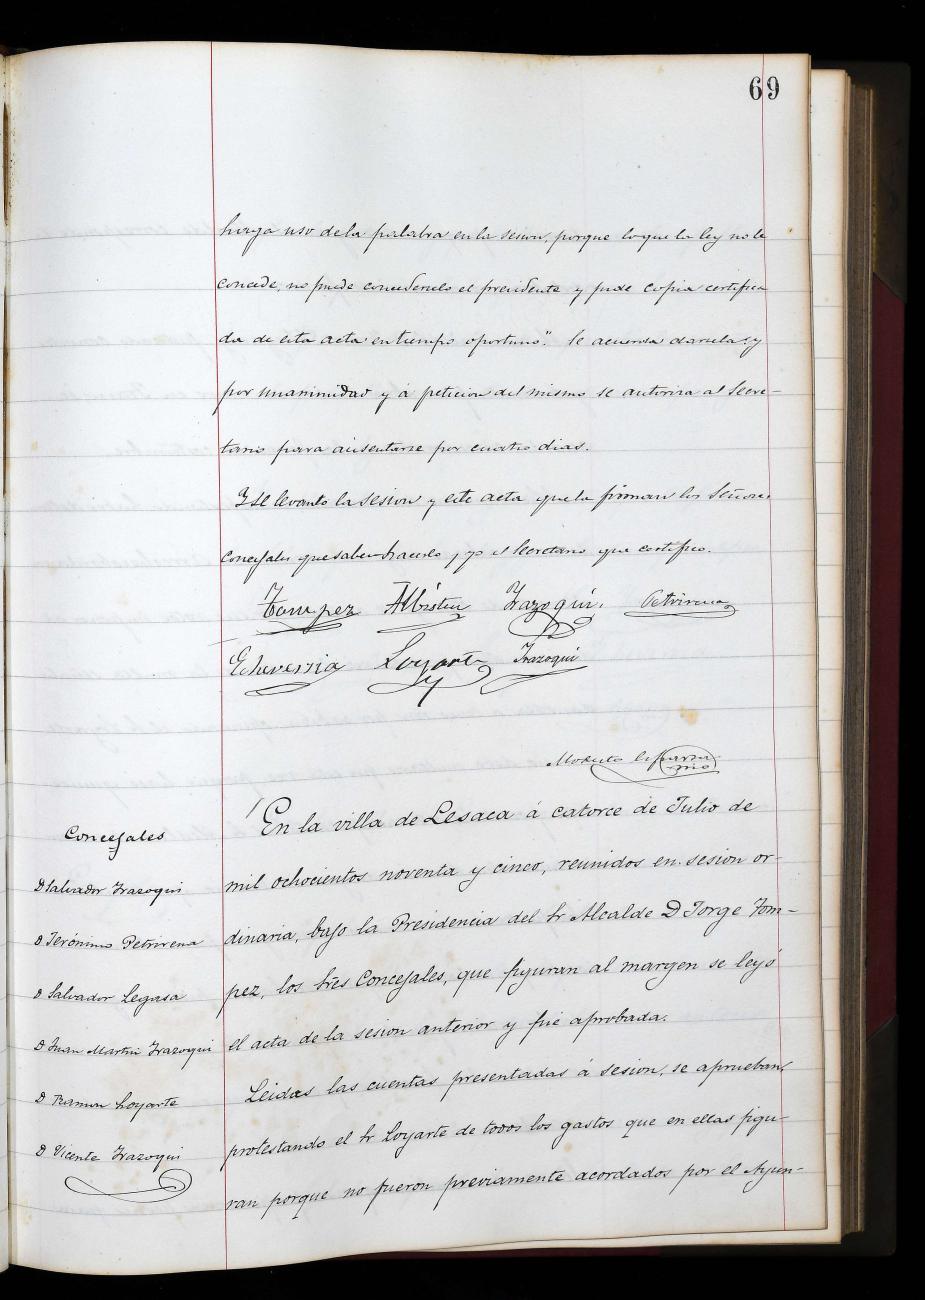 69
haya uso de la palabra en la sesion, porque lo que la ley no le
concede, no puede concederselo el presidente y pide copia certifica
da de esta acta en tiempo oportuno." Se acuerda darsela y
por unanimidad y á peticion del mismo se autoriza al Secre-
tario para ausentarse por cuatro dias.
Y se levanto la sesion y este acta que la firman los Señores
Concejales que saben hacerlo y yo el Secretario que certifico.
Tompez Albistur Yrazoqui. Petrirena
Echeverria Loyarte Yrazoqui
Modesto
En la villa de Lesaca á catorce de Julio de
mil ochocientos noventa y cinco, reunidos en sesion or-
dinaria, bajo la Presidencia del Sr Alcalde D Jorge Tom-
pez, los Sres Concejales, que figuran al margen se leyó
el acta de la sesion anterior y fué aprobada.
Leidas las cuentas presentadas á sesion, se aprueban
protestando el Sr Loyarte de todos los gastos que en ellas figu-
ran porque no fueron previamente acordados por el Ayun-
Concejales
D Salvador Yrazoqui
D Jerónimo Petrirena
D Salvador Legasa
D Juan Martin Yrazoqui
D Ramon Loyarte
D Vicente Yrazoqui